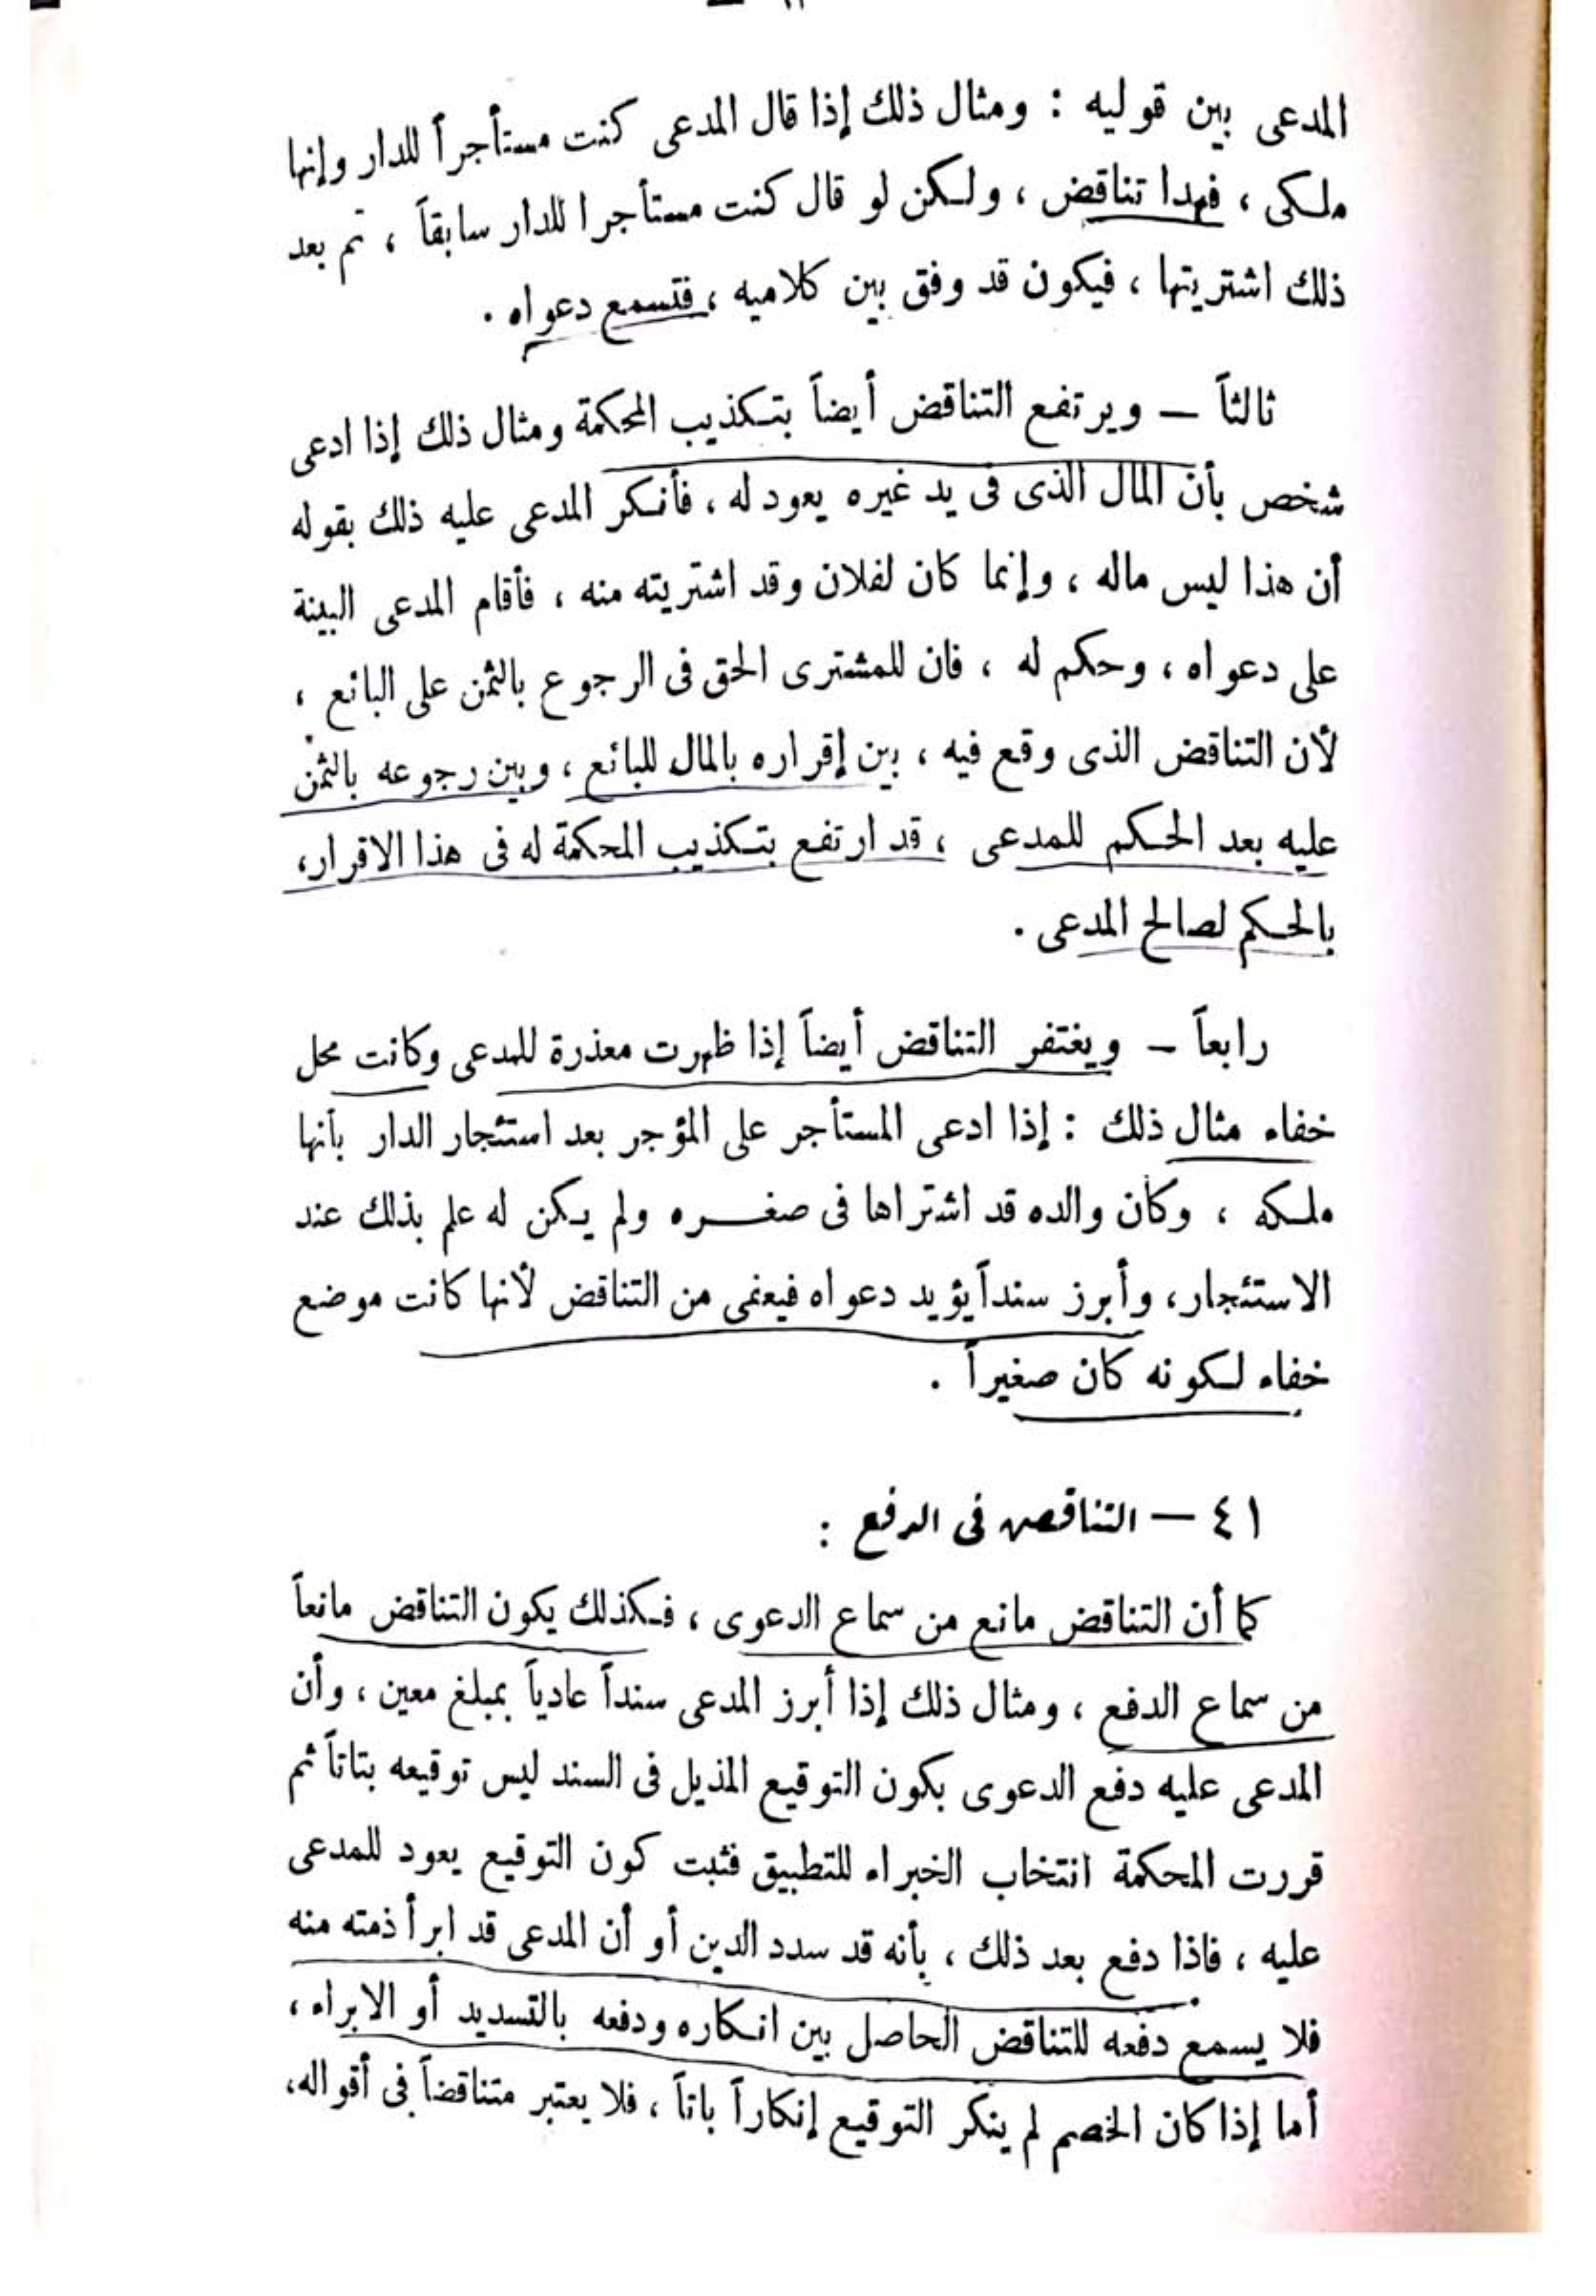 المدعى بين قوليه : ومثال ذلك إذا قال المدعى كنت مستأجراً للدار وإنها
ملكى ، فهذا تناقض ، ولكن لو قال كنت مستأجرا للدار سابقاً ، ثم بعد
ذلك اشتريتها ، فيكون قد وفق بين كلاميه ، فتسمع دعواه .
ثالثاً — ويرتفع التناقض أيضاً بتكذيب المحكمة ومثال ذلك إذا ادعى
شخص بأن المال الذى فى يد غيره يعود له ، فأنكر المدعى عليه ذلك بقوله
أن هذا ليس ماله ، وإنما كان لفلان وقد اشتريته منه ، فأقام المدعى البينة
على دعواه ، وحكم له ، فان للمشترى الحق فى الرجوع بالثمن على البائع ،
لأن التناقض الذى وقع فيه ، بين إقراره بالمال للبائع ، وبين رجوعه بالثمن
عليه بعد الحكم للمدعى ، قد ارتفع بتكذيب المحكمة له فى هذا الاقرار،
بالحكم لصالح المدعى .
رابعاً — ويغتفر التناقض أيضاً إذا ظهرت معذرة للمدعى وكانت محل
خفاء مثال ذلك : إذا ادعى المستأجر على المؤجر بعد استئجار الدار بأنها
ملكه ، وكان والده قد اشتراها فى صغره ولم يكن له علم بذلك عند
الاستئجار، وأبرز سنداً يؤيد دعواه فيعفى من التناقض لأنها كانت موضع
خفاء لكونه كان صغيراً .
٤١ — التناقض فى الدفع :
كما أن التناقض مانع من سماع الدعوى ، فكذلك يكون التناقض مانعاً
من سماع الدفع ، ومثال ذلك إذا أبرز المدعى سنداً عادياً بمبلغ معين ، وأن
المدعى عليه دفع الدعوى بكون التوقيع المذيل فى السند ليس توقيعه بتاتاً ثم
قررت المحكمة انتخاب الخبراء للتطبيق فثبت كون التوقيع يعود للمدعى
عليه ، فاذا دفع بعد ذلك ، بأنه قد سدد الدين أو أن المدعى قد ابرأ ذمته منه
فلا يسمع دفعه للتناقض الحاصل بين انكاره ودفعه بالتسديد أو الابراء ،
أما إذا كان الخصم لم ينكر التوقيع إنكاراً باتاً ، فلا يعتبر متناقضاً فى أقواله،